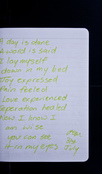 day is done
word is said
I lay myself
down in my bed
Joy expressed
Pain feeled
Love experienced
Seperation healed
Now I know I
am wise
you can see
it in my eyes
July